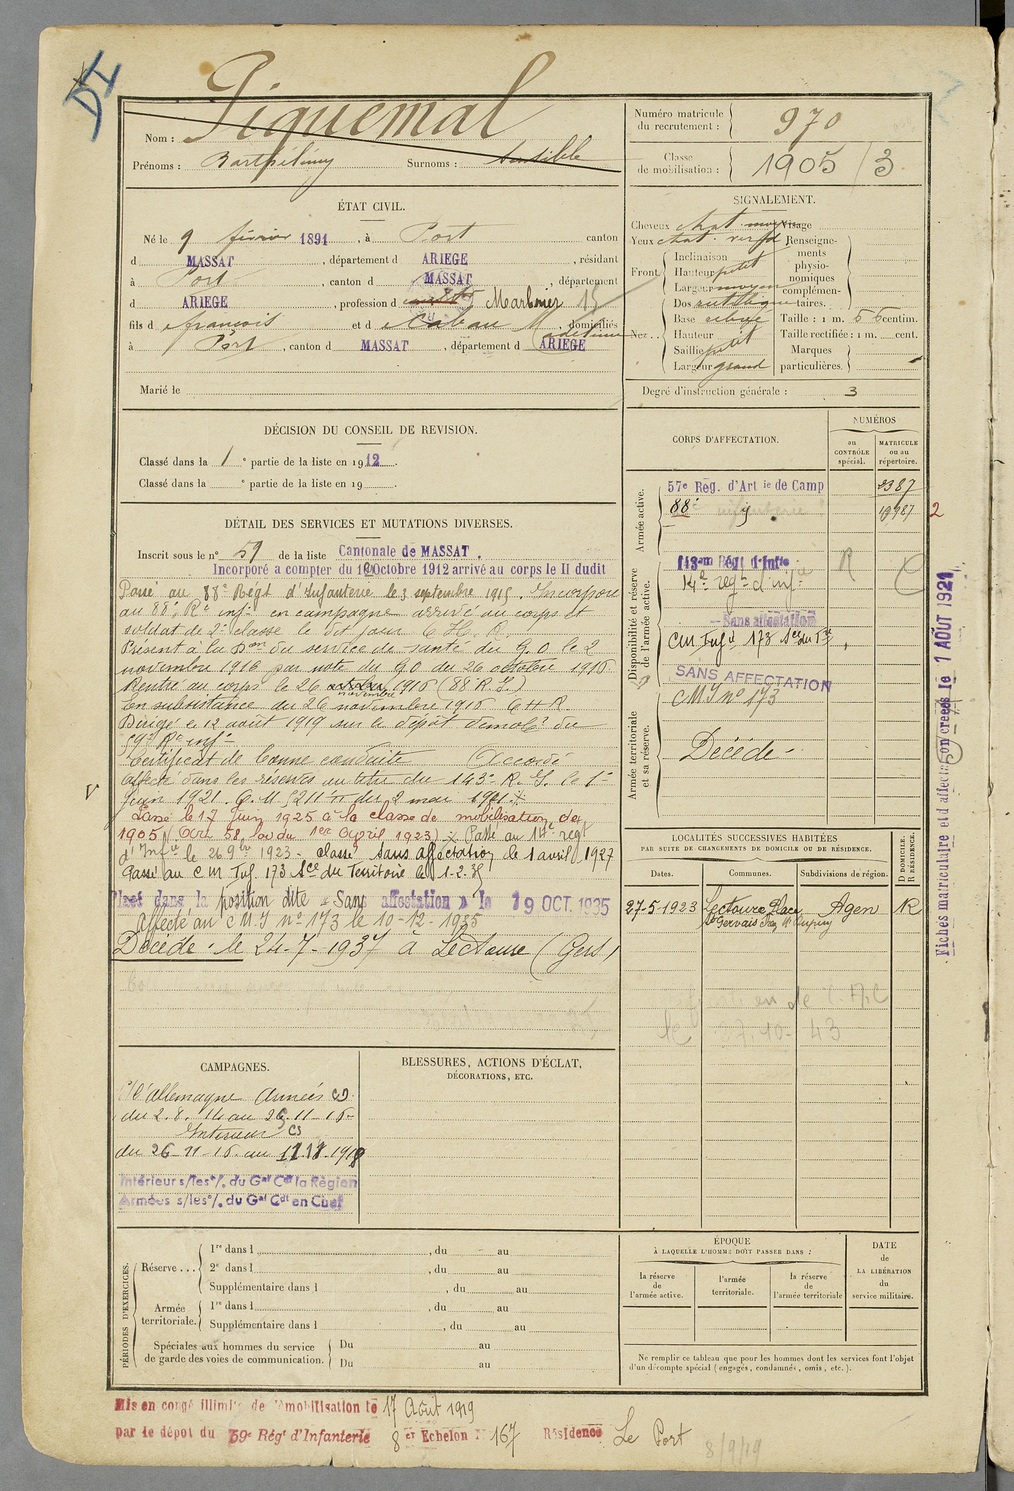 DI
Nom : Piquemal
Prénoms : Barthélémy Surnoms :
Numéro matricule du recrutement : 970
Classe de mobilisation : 1905 / 3
ÉTAT CIVIL.
Né le 9 février 1891, à Port canton
d MASSAT, département d ARIEGE, résidant
à Port, canton d MASSAT, département
d ARIEGE, profession d Marbrier 15
fils d François et d domiciliés
à Port, canton d MASSAT, département d ARIEGE
Marié le
SIGNALEMENT.
Cheveux chat. Visage
Yeux chat. Renseignements physionomiques complémentaires.
Front Inclinaison
Hauteur petit
Largeur moyen
Nez Dos
Base relevé Taille : 1 m. 56 centim.
Hauteur Taille rectifiée : 1 m. cent.
Saillie petit Marques
Largeur grand particulières.
Degré d'instruction générale : 3
DÉCISION DU CONSEIL DE REVISION.
Classé dans la 1e partie de la liste en 1912.
Classé dans la e partie de la liste en 19
DÉTAIL DES SERVICES ET MUTATIONS DIVERSES.
Inscrit sous le n° 59 de la liste Cantonale de MASSAT.
Incorporé a compter du 10 Octobre 1912 arrivé au corps le II dudit
Passé au 88e Régt d'Infanterie le 3 septembre 1915. Incorporé
au 88e Rt inf. en campagne arrivé au corps et
soldat de 2e classe le dit jour C. H. R.
Présent à la Don du service de santé du G. Q. le 2
novembre 1916 par note du G Q du 26 octobre 1916
Rentré au corps le 26 octobre novembre 1916 (88 R. I.)
En subsistance du 26 novembre 1916 C H R.
Dirigé le 12 août 1919 sur le dépôt démobr du
59e Rt inf.
Certificat de bonne conduite Accordé
Affecté dans les réserves au titre du 143e R. I. le 1er
Juin 1921 C. M 5211 π du 2 mai 1921
Passé le 17 Juin 1925 à la classe de mobilisation de
1905 (Art 58, loi du 1er Avril 1923) Passé au 14e regt
d'Infie le 26 9bre 1923 - classé sans affectation le 1 avril 1927
Passé au C M Inf. 173 Sce du Territoire le 1-2-35
Placé dans la position dite « Sans affectation » le 19 OCT. 1935
Affecté au C M I n° 173 le 10-12-1935
Décédé le 24-7-1937 à Lectoure (Gers)
CORPS D'AFFECTATION.
NUMÉROS
au CONTRÔLE spécial.
MATRICULE ou au répertoire.
Armée active.
57e Rég. d'Artie de Camp 2387
88e infanterie 19787 2
Disponibilité et réserve de l'armée active.
143em Régt d'Infie R
14e regt d'infie
Sans affectation
CM Infie 173 Sce du Tre
SANS AFFECTATION
C M I n° 173
Armée territoriale et sa réserve.
Décédé
LOCALITÉS SUCCESSIVES HABITÉES
PAR SUITE DE CHANGEMENTS DE DOMICILE OU DE RÉSIDENCE.
Dates. Communes. Subdivisions de région. D DOMICILE. R RÉSIDENCE.
27-5-1923 Lectoure Place Agen R
St Gervais
le 27.10.43
Fiches matriculaire et d'affectation créées le 1 AOUT 1921
CAMPAGNES.
C/ l'Allemagne Armées CD
du 2.8.14 au 25-11-16
Intérieur CS
du 26-11-16 au 11.11.1918
Intérieur s/les o/. du Gal Cdt la Région
Armées s/les o/. du Gal Cdt en Chef
BLESSURES, ACTIONS D'ÉCLAT,
DÉCORATIONS, ETC.
PÉRIODES D'EXERCICES.
Réserve ... 1re dans l , du au
2e dans l , du au
Supplémentaire dans l , du au
Armée territoriale. 1re dans l , du au
Supplémentaire dans l , du au
Spéciales aux hommes du service de garde des voies de communication. Du au
Du au
ÉPOQUE
À LAQUELLE L'HOMME DOIT PASSER DANS :
la réserve de l'armée active. l'armée territoriale. la réserve de l'armée territoriale
DATE de LA LIBÉRATION du service militaire.
Ne remplir ce tableau que pour les hommes dont les services font l'objet
d'un décompte spécial (engagés, condamnés, omis, etc.).
Mis en congé illimité de démobilisation le 17 Août 1919
par le dépot du 59e Régt d'Infanterie 8er Echelon N° 167 Résidence Le Port
8/9/19